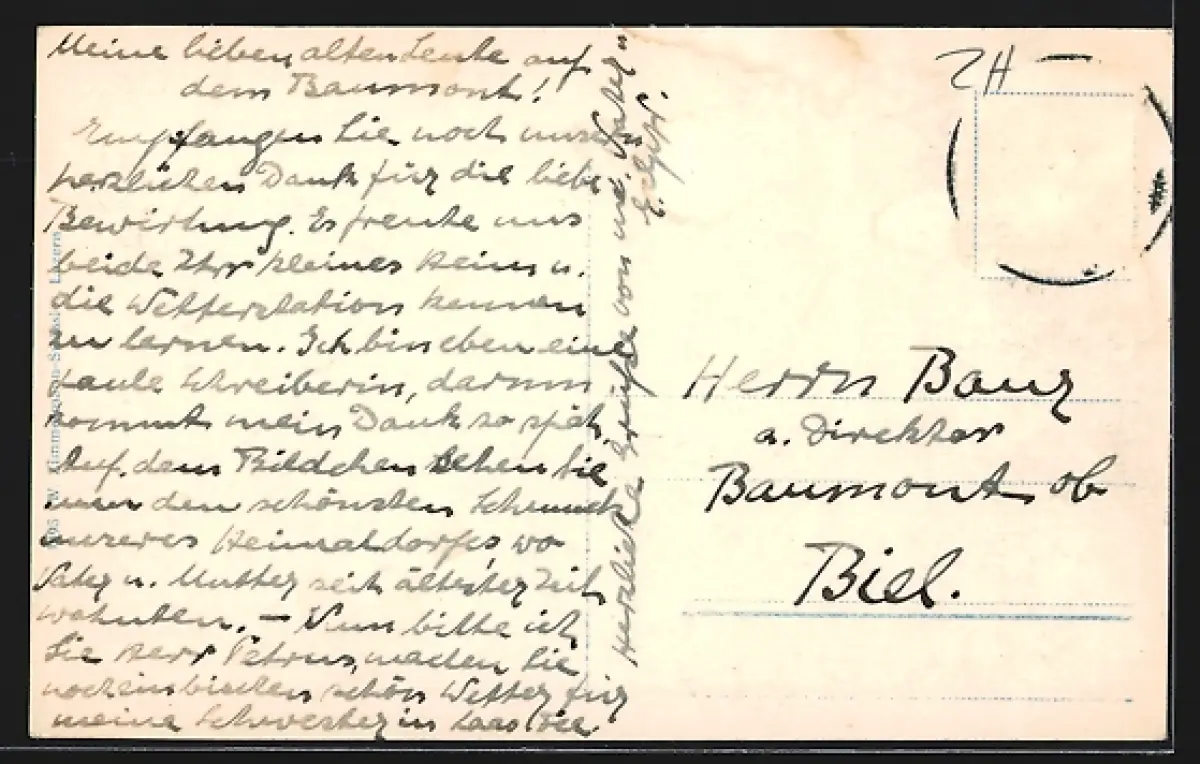 Meine lieben alten Leute auf
dem Baumont!
Empfangen Sie noch unsern
herzlichen Dank für die liebe
Bewirtung. Es freute uns
beide Ihr kleines Heim u.
die Wetterstation kennen
zu lernen. Ich bin eben eine
faule Schreiberin, darum
kommt mein Dank so spät.
Auf dem Bildchen sehen Sie
nun den schönsten Schmuck
unseres Heimatdorfes, wo
Vater u. Mutter seit ältester Zeit
wohnten. – Nun bitte ich
Sie Herr Petrus, machen Sie
noch ein bischen schön Wetter für
meine Schwester in
Herzliche Grüsse von
ZH
Herrn Banz
a. Direktor
Baumont ob
Biel.